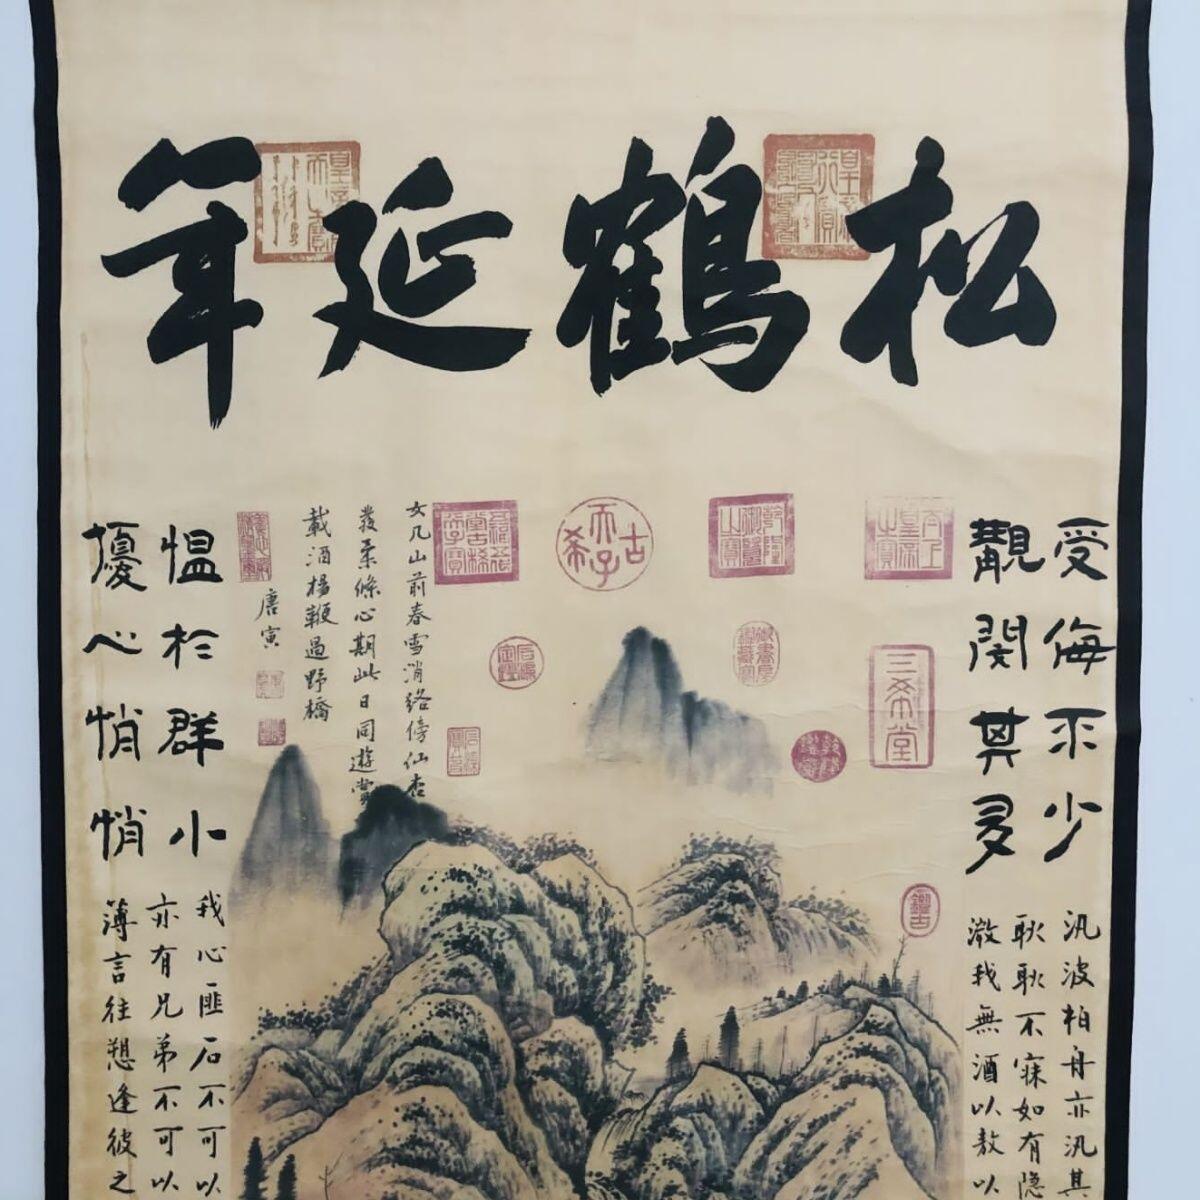 松鶴延年
受侮不少
覯閔其多
汎波柏舟亦汎其
耿耿不寐如有隐
激我無酒以敖以
三希堂
鑑古
古希天子
女几山前春雪消络傍仙杏
發柔條心期此日同遊賞
載酒楊鞭過野橋
唐寅
愠於群小
擾心悄悄
我心匪石不可以
亦有兄弟不可以
薄言往愬逢彼之